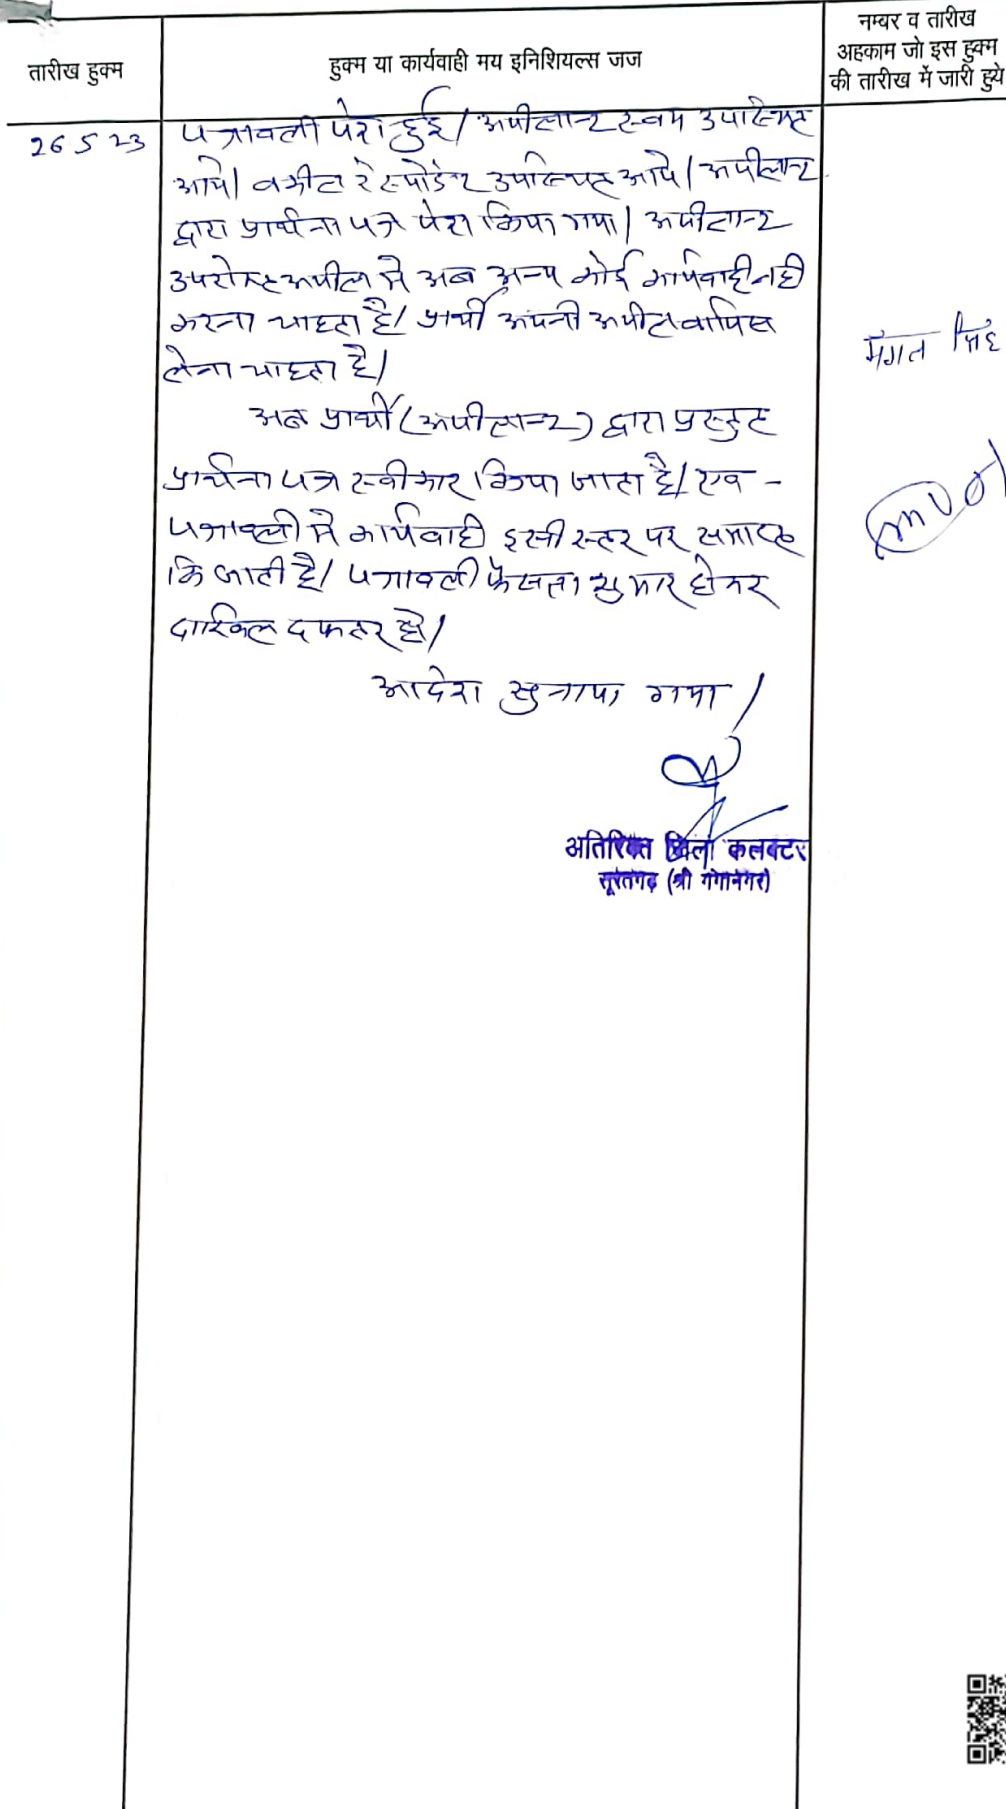 तारीख हुक्म
हुक्म या कार्यवाही मय इनिशियल्स जज
नम्बर व तारीख
अहकाम जो इस हुक्म
की तारीख में जारी हुये
26 5 23
पत्रावली पेश हुई। अपीलान्ट स्वयं उपस्थित
आये। वकील रेस्पोडेंट उपस्थित आये। अपीलान्ट
द्वारा प्रार्थना पत्र पेश किया गया। अपीलान्ट
उपरोक्त अपील मे अब अन्य कोई कार्यवाही नही
करना चाहता है। प्रार्थी अपनी अपील वापिस
लेना चाहता है।
मंगत सिंह
अतः प्रार्थी (अपीलान्ट) द्वारा प्रस्तुत
प्रार्थना पत्र स्वीकार किया जाता है। एवं -
पत्रावली मे कार्यवाही इसी स्तर पर समाप्त
कि जाती है। पत्रावली फैसला सुमार होकर
दाखिल दफतर हो।
आदेश सुनाया गया।
अतिरिक्त जिला कलक्टर
सूरतगढ़ (श्री गंगानगर)